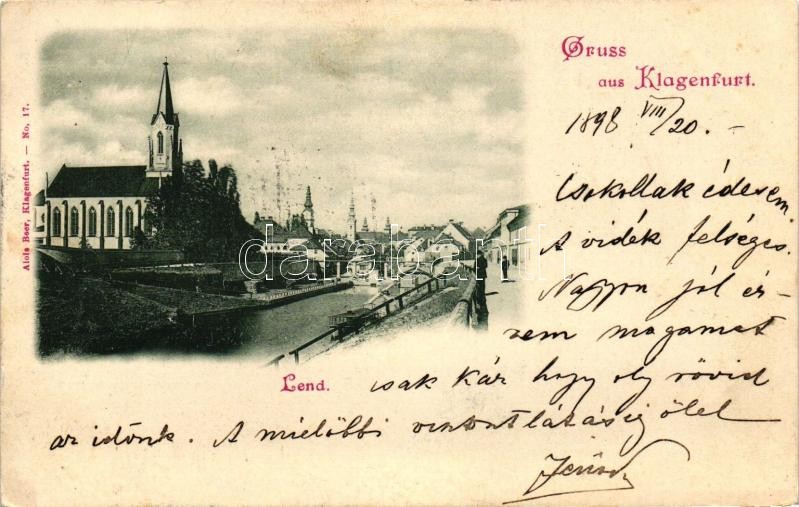 Gruss
aus Klagenfurt.
1898 VIII/20. –
Csokollak édesem.
A vidék felséges.
Nagyon jól ér-
zem magamat
csak kár hogy oly rövid
az időnk. A mielőbbi viszontlátásig ölel
Jenő
Lend.
Alois Beer, Klagenfurt. — No. 17.
darabanth